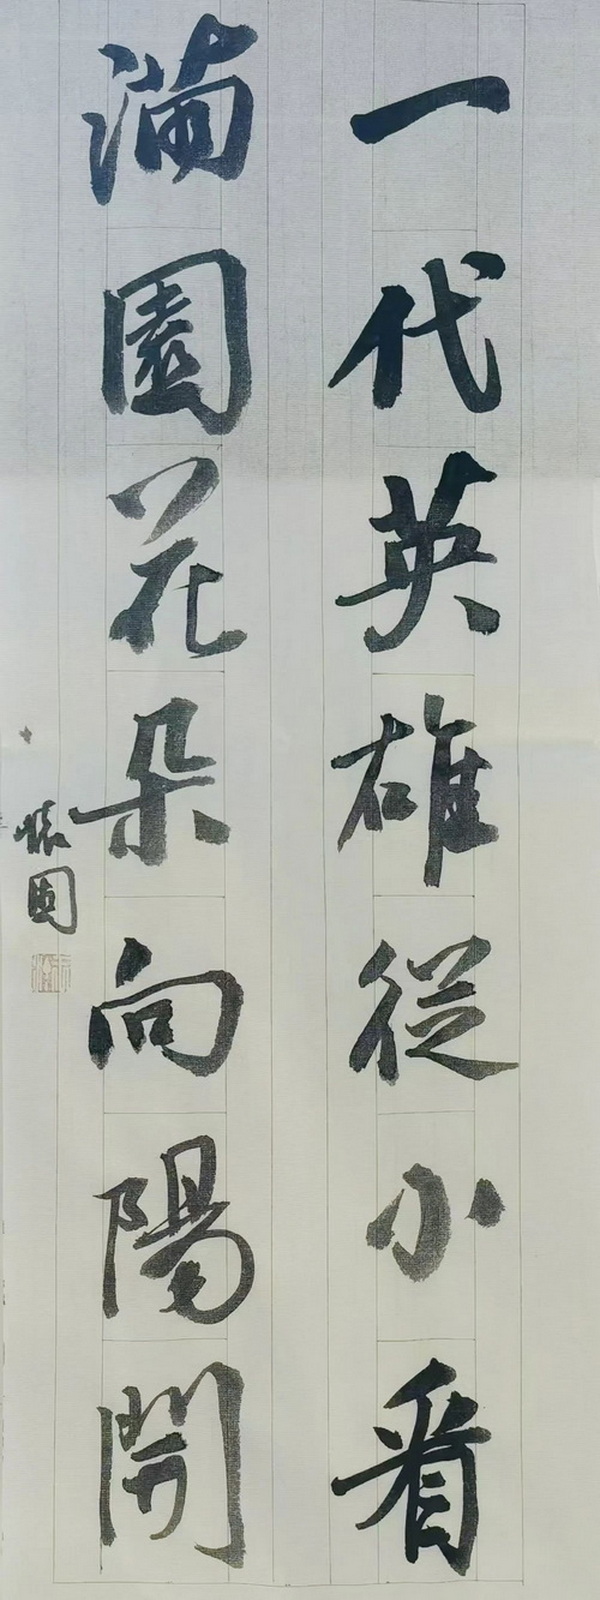 一代英雄從小看
滿園花朵向陽開